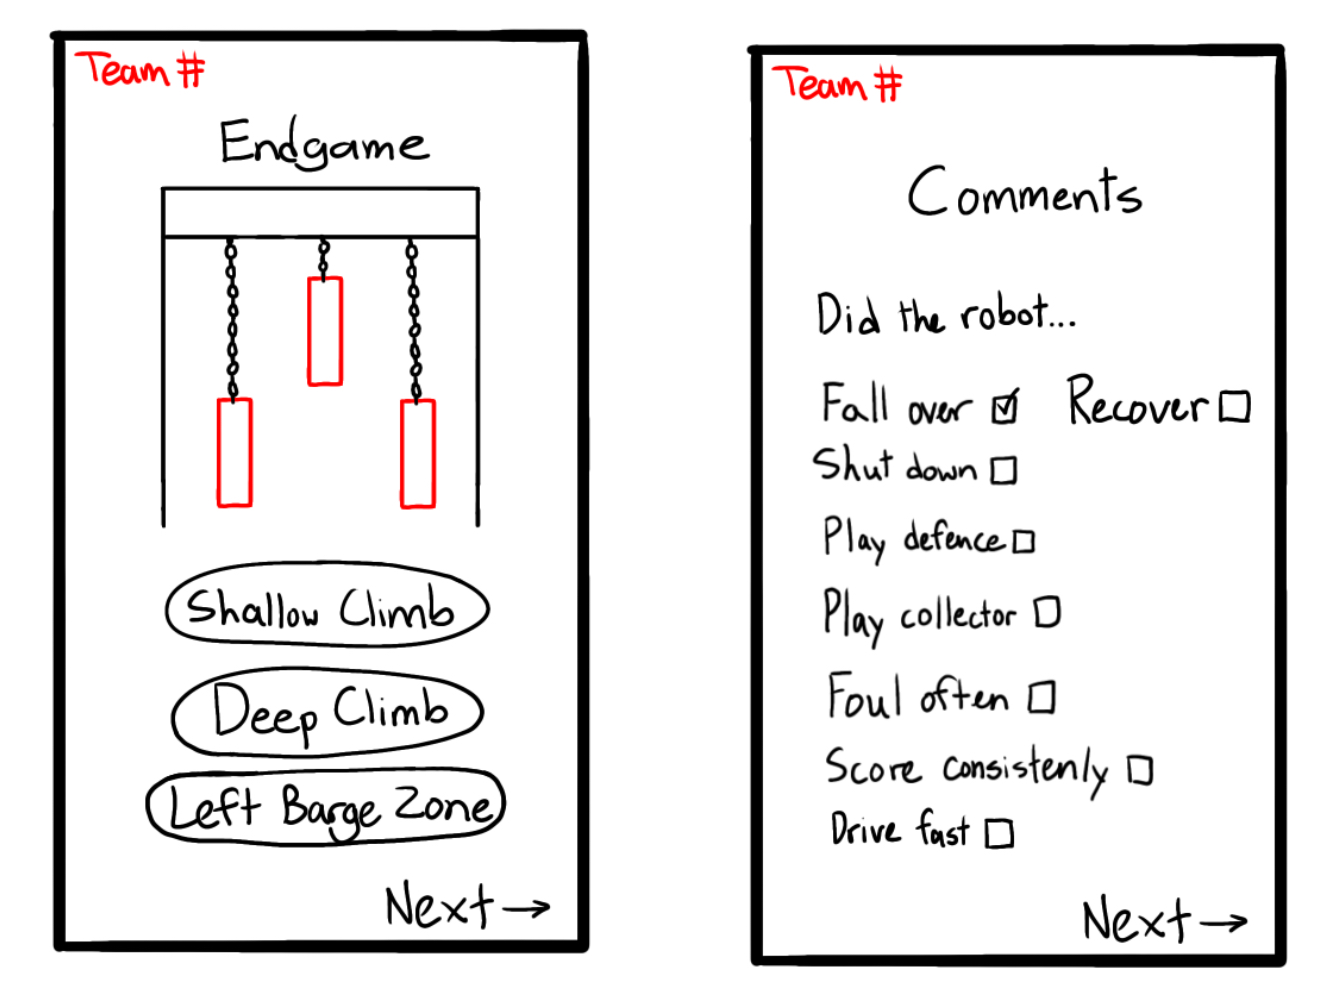 Team #
Endgame
Shallow Climb
Deep Climb
Left Barge Zone
Next →
Team #
Comments
Did the robot...
Fall over ☑ Recover ☐
Shut down ☐
Play defence ☐
Play collector ☐
Foul often ☐
Score consistenly ☐
Drive fast ☐
Next →